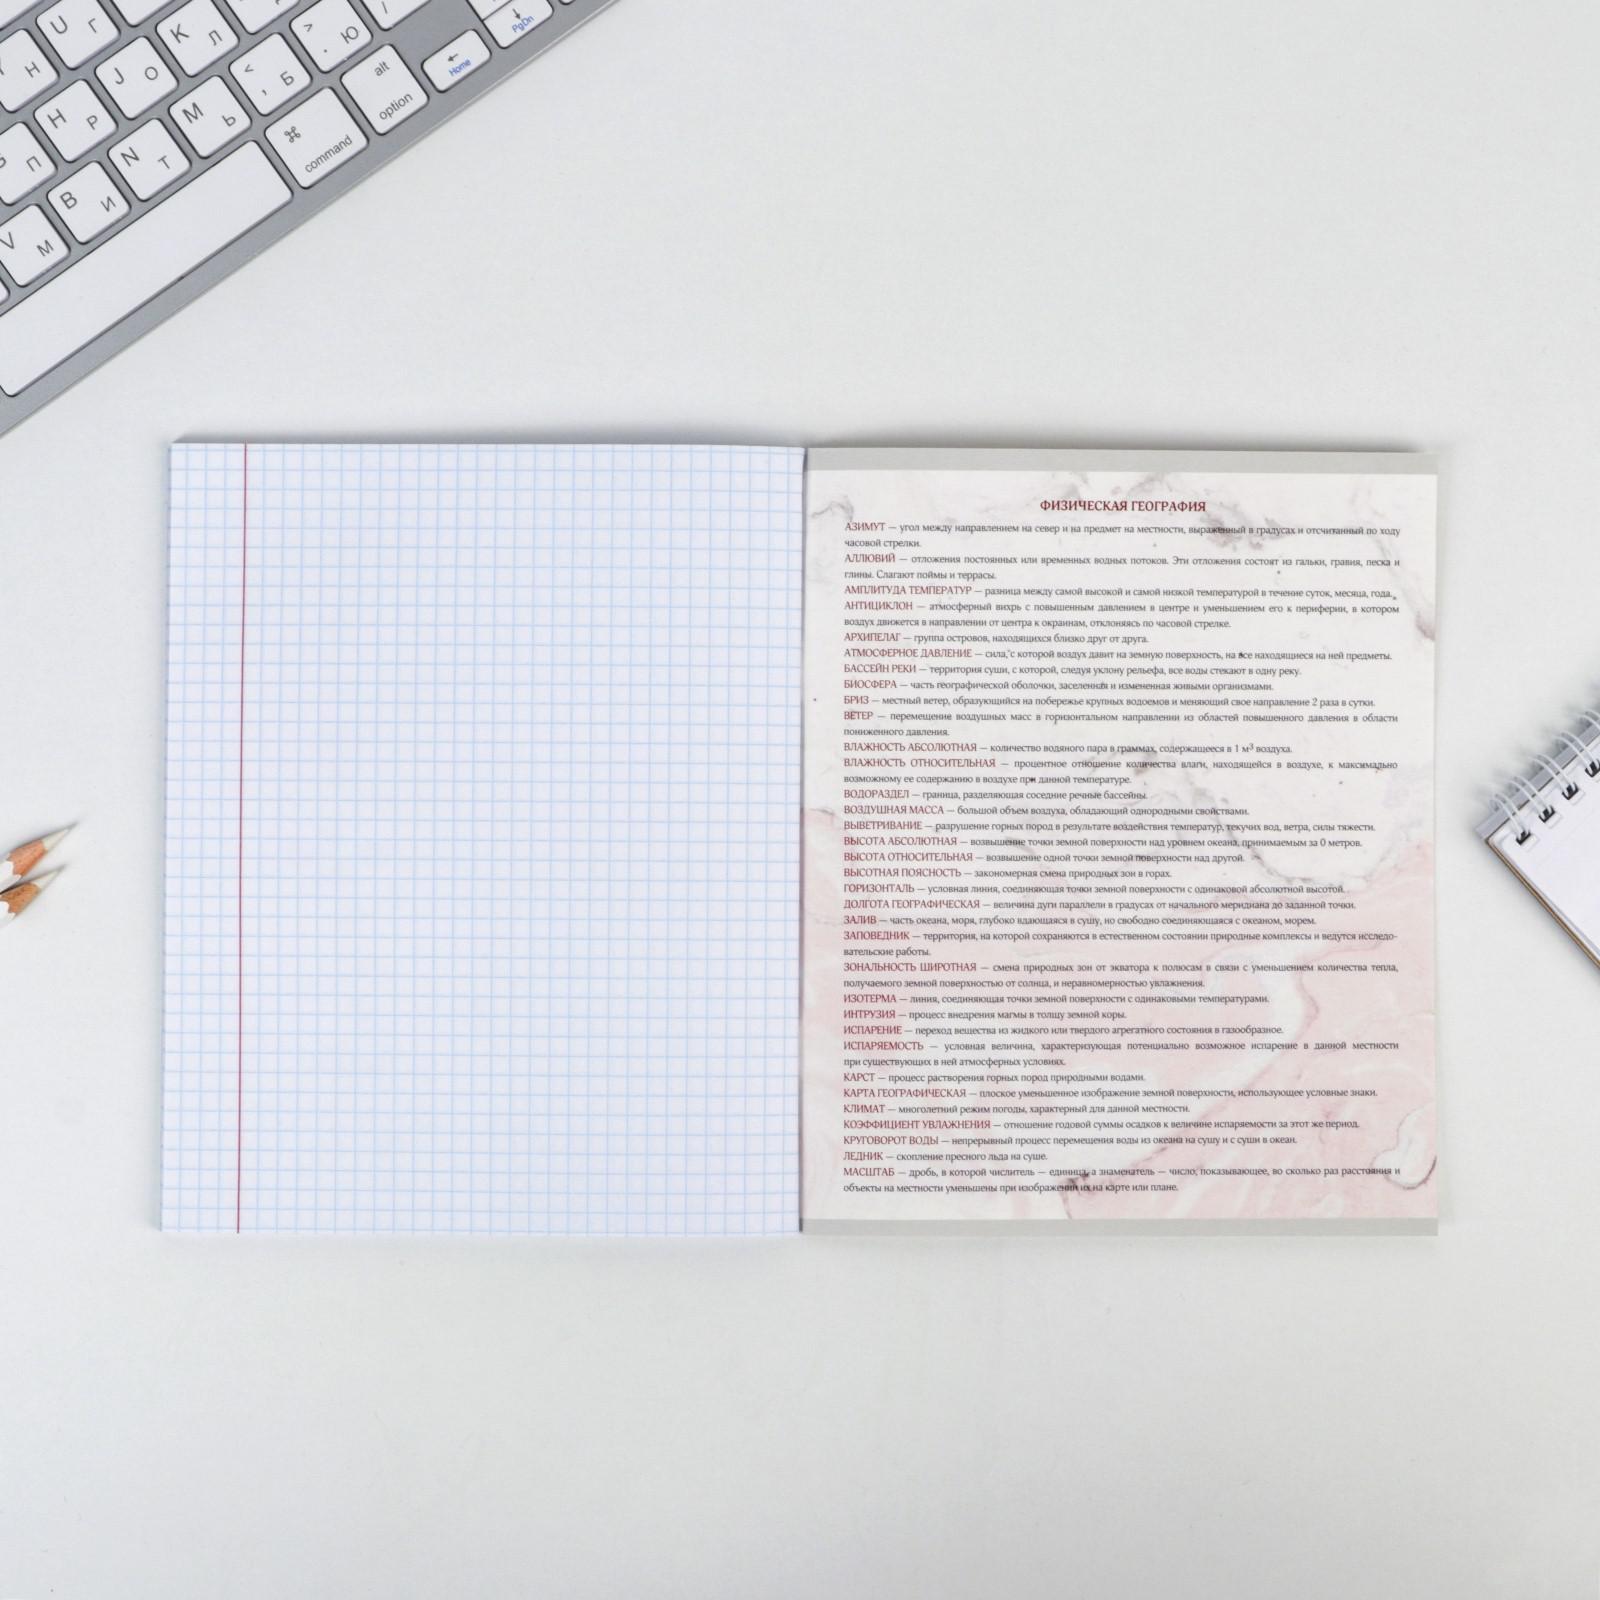 U Г
K Л
> . Ю
/
PgDn
Н
J О
< , Б
alt option
← Home
П
H Р
M Ь
⌘ command
B И
N Т
V М
ФИЗИЧЕСКАЯ ГЕОГРАФИЯ
АЗИМУТ — угол между направлением на север и на предмет на местности, выраженный в градусах и отсчитанный по ходу
часовой стрелки.
АЛЛЮВИЙ — отложения постоянных или временных водных потоков. Эти отложения состоят из гальки, гравия, песка и
глины. Слагают поймы и террасы.
АМПЛИТУДА ТЕМПЕРАТУР — разница между самой высокой и самой низкой температурой в течение суток, месяца, года.
АНТИЦИКЛОН — атмосферный вихрь с повышенным давлением в центре и уменьшением его к периферии, в котором
воздух движется в направлении от центра к окраинам, отклоняясь по часовой стрелке.
АРХИПЕЛАГ — группа островов, находящихся близко друг от друга.
АТМОСФЕРНОЕ ДАВЛЕНИЕ — сила, с которой воздух давит на земную поверхность, на все находящиеся на ней предметы.
БАССЕЙН РЕКИ — территория суши, с которой, следуя уклону рельефа, все воды стекают в одну реку.
БИОСФЕРА — часть географической оболочки, заселенная и измененная живыми организмами.
БРИЗ — местный ветер, образующийся на побережье крупных водоемов и меняющий свое направление 2 раза в сутки.
ВЕТЕР — перемещение воздушных масс в горизонтальном направлении из областей повышенного давления в области
пониженного давления.
ВЛАЖНОСТЬ АБСОЛЮТНАЯ — количество водяного пара в граммах, содержащееся в 1 м³ воздуха.
ВЛАЖНОСТЬ ОТНОСИТЕЛЬНАЯ — процентное отношение количества влаги, находящейся в воздухе, к максимально
возможному ее содержанию в воздухе при данной температуре.
ВОДОРАЗДЕЛ — граница, разделяющая соседние речные бассейны.
ВОЗДУШНАЯ МАССА — большой объем воздуха, обладающий однородными свойствами.
ВЫВЕТРИВАНИЕ — разрушение горных пород в результате воздействия температур, текучих вод, ветра, силы тяжести.
ВЫСОТА АБСОЛЮТНАЯ — возвышение точки земной поверхности над уровнем океана, принимаемым за 0 метров.
ВЫСОТА ОТНОСИТЕЛЬНАЯ — возвышение одной точки земной поверхности над другой.
ВЫСОТНАЯ ПОЯСНОСТЬ — закономерная смена природных зон в горах.
ГОРИЗОНТАЛЬ — условная линия, соединяющая точки земной поверхности с одинаковой абсолютной высотой.
ДОЛГОТА ГЕОГРАФИЧЕСКАЯ — величина дуги параллели в градусах от начального меридиана до заданной точки.
ЗАЛИВ — часть океана, моря, глубоко вдающаяся в сушу, но свободно соединяющаяся с океаном, морем.
ЗАПОВЕДНИК — территория, на которой сохраняются в естественном состоянии природные комплексы и ведутся исследо-
вательские работы.
ЗОНАЛЬНОСТЬ ШИРОТНАЯ — смена природных зон от экватора к полюсам в связи с уменьшением количества тепла,
получаемого земной поверхностью от солнца, и неравномерностью увлажнения.
ИЗОТЕРМА — линия, соединяющая точки земной поверхности с одинаковыми температурами.
ИНТРУЗИЯ — процесс внедрения магмы в толщу земной коры.
ИСПАРЕНИЕ — переход вещества из жидкого или твердого агрегатного состояния в газообразное.
ИСПАРЯЕМОСТЬ — условная величина, характеризующая потенциально возможное испарение в данной местности
при существующих в ней атмосферных условиях.
КАРСТ — процесс растворения горных пород природными водами.
КАРТА ГЕОГРАФИЧЕСКАЯ — плоское уменьшенное изображение земной поверхности, использующее условные знаки.
КЛИМАТ — многолетний режим погоды, характерный для данной местности.
КОЭФФИЦИЕНТ УВЛАЖНЕНИЯ — отношение годовой суммы осадков к величине испаряемости за этот же период.
КРУГОВОРОТ ВОДЫ — непрерывный процесс перемещения воды из океана на сушу и с суши в океан.
ЛЕДНИК — скопление пресного льда на суше.
МАСШТАБ — дробь, в которой числитель — единица, а знаменатель — число, показывающее, во сколько раз расстояния и
объекты на местности уменьшены при изображении их на карте или плане.